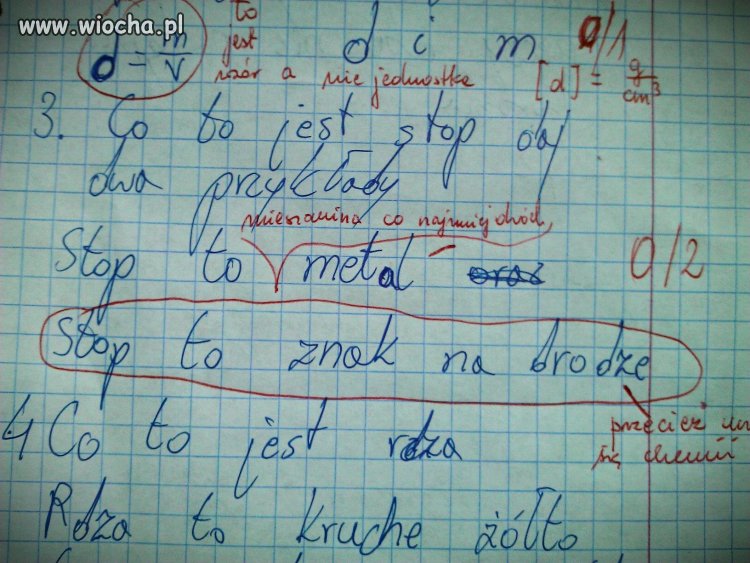 www.wiocha.pl
to
d = m/V jest d i m 0/1
wzór a nie jednostka [d] = g/cm³
3. Co to jest stop daj
dwa przykłady
mieszanina co najmniej dwóch
Stop to metal oraz 0/2
Stop to znak na drodze
przecież
się chemii
4 Co to jest rdza
Rdza to kruche żółto